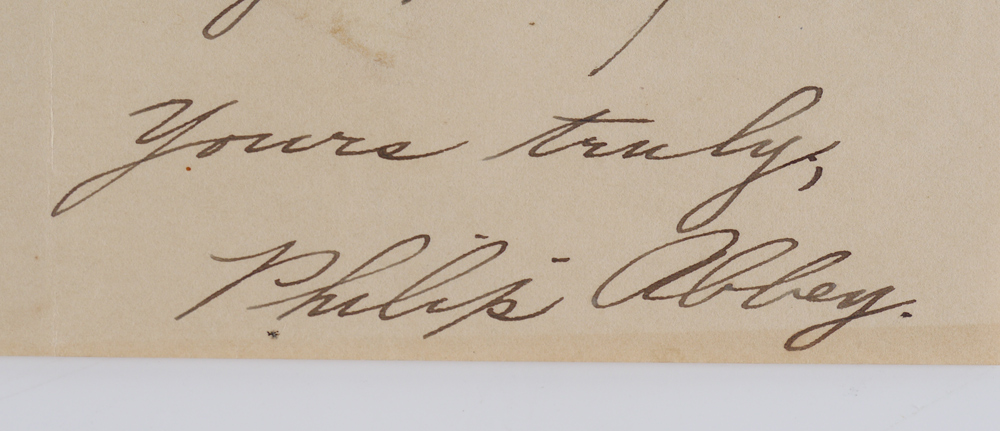 Yours truly,
Philip Abbey.